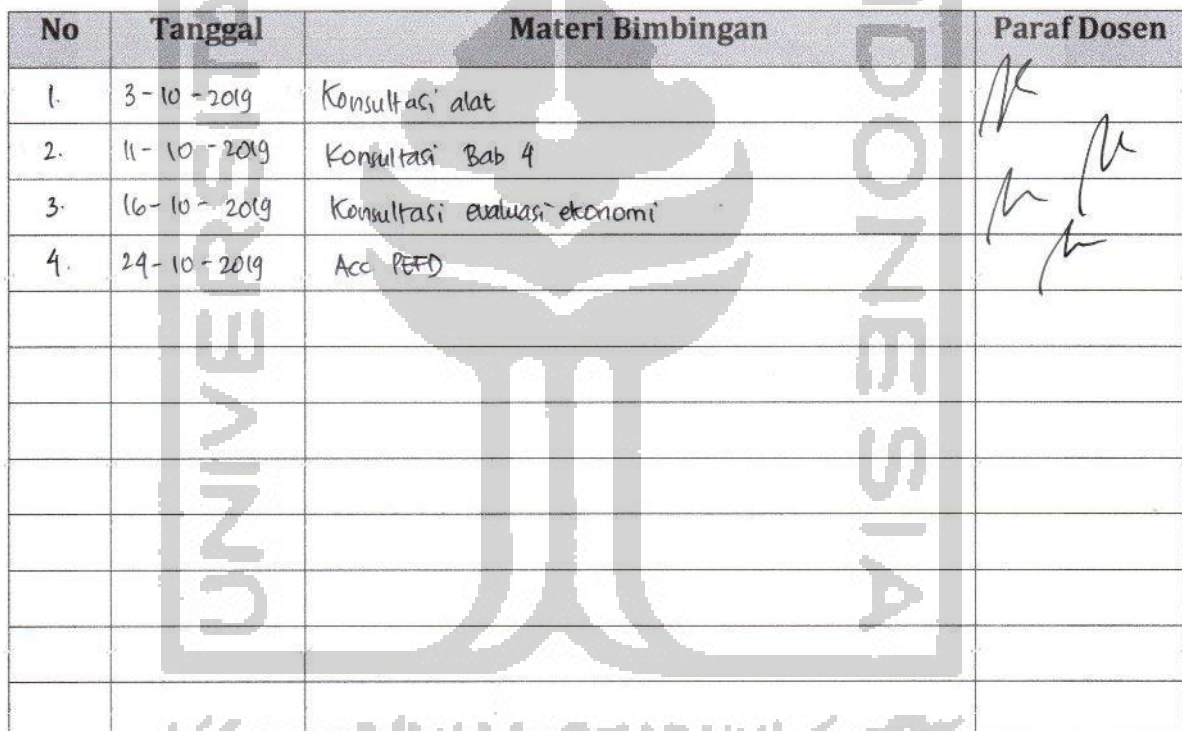 No Tanggal Materi Bimbingan Paraf Dosen
1. 3-10-2019 Konsultasi alat
2. 11-10-2019 Konsultasi Bab 4
3. 16-10-2019 Konsultasi evaluasi ekonomi
4. 24-10-2019 Acc PEFD
UNIVERSIT
NDONESIA